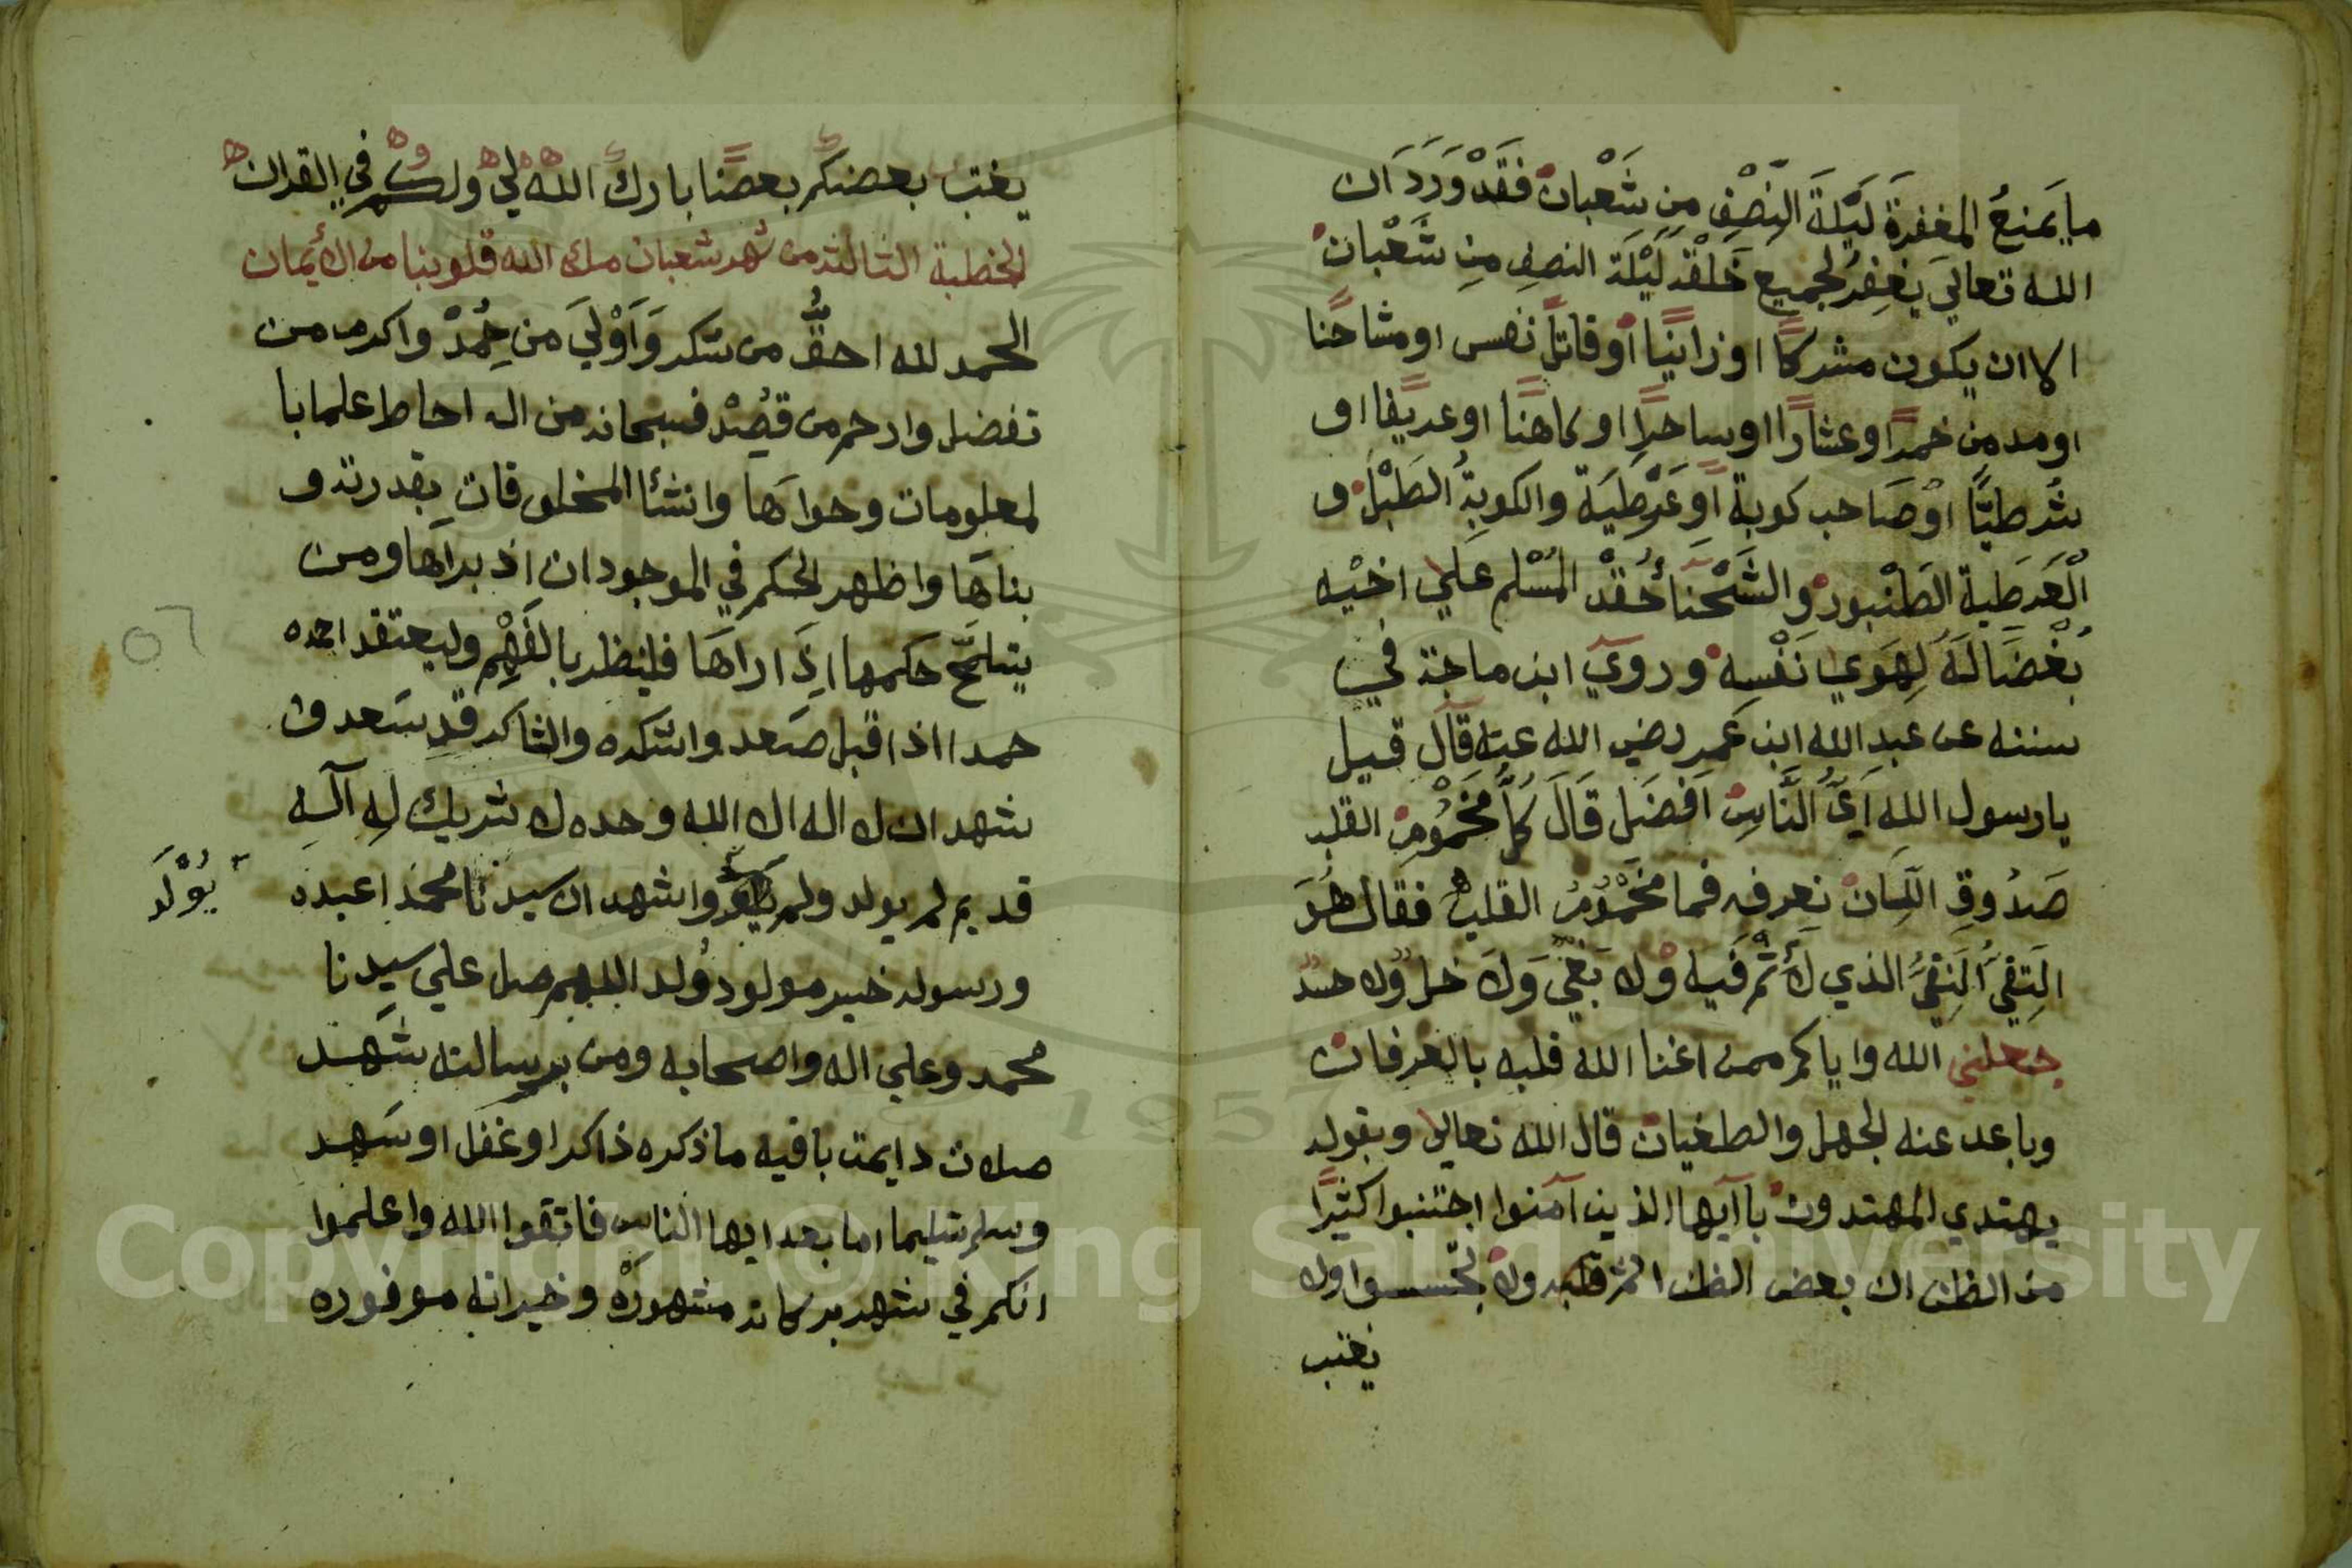 ما يَمنعُ المغفرةَ لَيْلَةَ النِّصْفِ مِن شَعْبانْ فَقَدْ وَرَدَ ان
الله تعالي يَغفِرُ لجميع خَلْقه لَيْلَة النصف مِن شَعْبانْ
الا ان يكون مشركًا او زانيًا أو قاتلً نفس او مشاحنًا
او مدمن خمرًا وعشارًا اوساحرًا او كاهنًا او عريفًا او
شُرطيًّا اوْصَاحب كوبة أوعَرْطبَة والكوبةُ الطَبْلْ و
الْعَرطبة الطنْبورْ والشَّحْنا حُقْدْ المُسْلم علي اخيْه
بُغْضَا لَهُ لِهَوي نَفْسِهْ وروي ابن ماجة في
سننه عن عبد الله ابن عمر رضي الله عنه قال قيل
يا رسول الله اَيُّ النَّاسِ اَفضَل قَالَ كلُّ مَخْمُومِ القلب
صَدُوقِ اللّسانْ نعرفه فما مَخْمُومُ القلب فقال هُوَ
التَقيُّ النَقيُّ الذي لا أثْم فيه ولا بَغْيَ وَلا غل ولا حسد
جعلني الله واياكم ممن اغنا الله قلبه بالعرفان
وباعد عنه الجهل والطغيان قال الله تعالي وبقوله
يهتدي المهتدون يا آيها الذين آمنوا اجتنبوا كثيرًا
من الظن ان بعض الظن اثم ولا تجسسوا ولا
يغتب
يغتب بعضكم بعضًا بارك الله لي ولكم في القران
الخطبة الثالثه من شهر شعبان ملاء الله قلوبنا من الأيمان
الحمد لله احقُّ من شكر وَاَوْليَ من حُمِدْ واكرم من
تفضل وارحم من قصِدْ فسبحانه من اله احاط علما با
لمعلومات وحواها وانشئا المخلوقات بقدرته و
بناها واظهر الحكم في الموجودان اذ براها ومن
يتلمّح حكمها اذِ اراها فلينظر بالفَهْمِ وليعتقد احمده
حمدا اذا قبل صَعد واشكره والشاكر قد سَعد و
شهد ان لا اله الا الله وحده لا شريك له آله
قديم لم يولد ولم واشهد ان سيدنا محمدا عبده
يُوْلَد
ورسوله خير مولود وُلد اللهم صل علي سيدنا
محمد وعلي اله واصحابه ومن برسالته شَهد
صلات دايمت باقيه ما ذكره ذاكرا وغفل او سَهد
وسلم تسليما اما بعد ايها الناس فاتقوا الله واعلموا
انكم في شهر بركاته مشهورَهْ وخيراته موفوره
٥٦
Copyright © King Saud University
1957